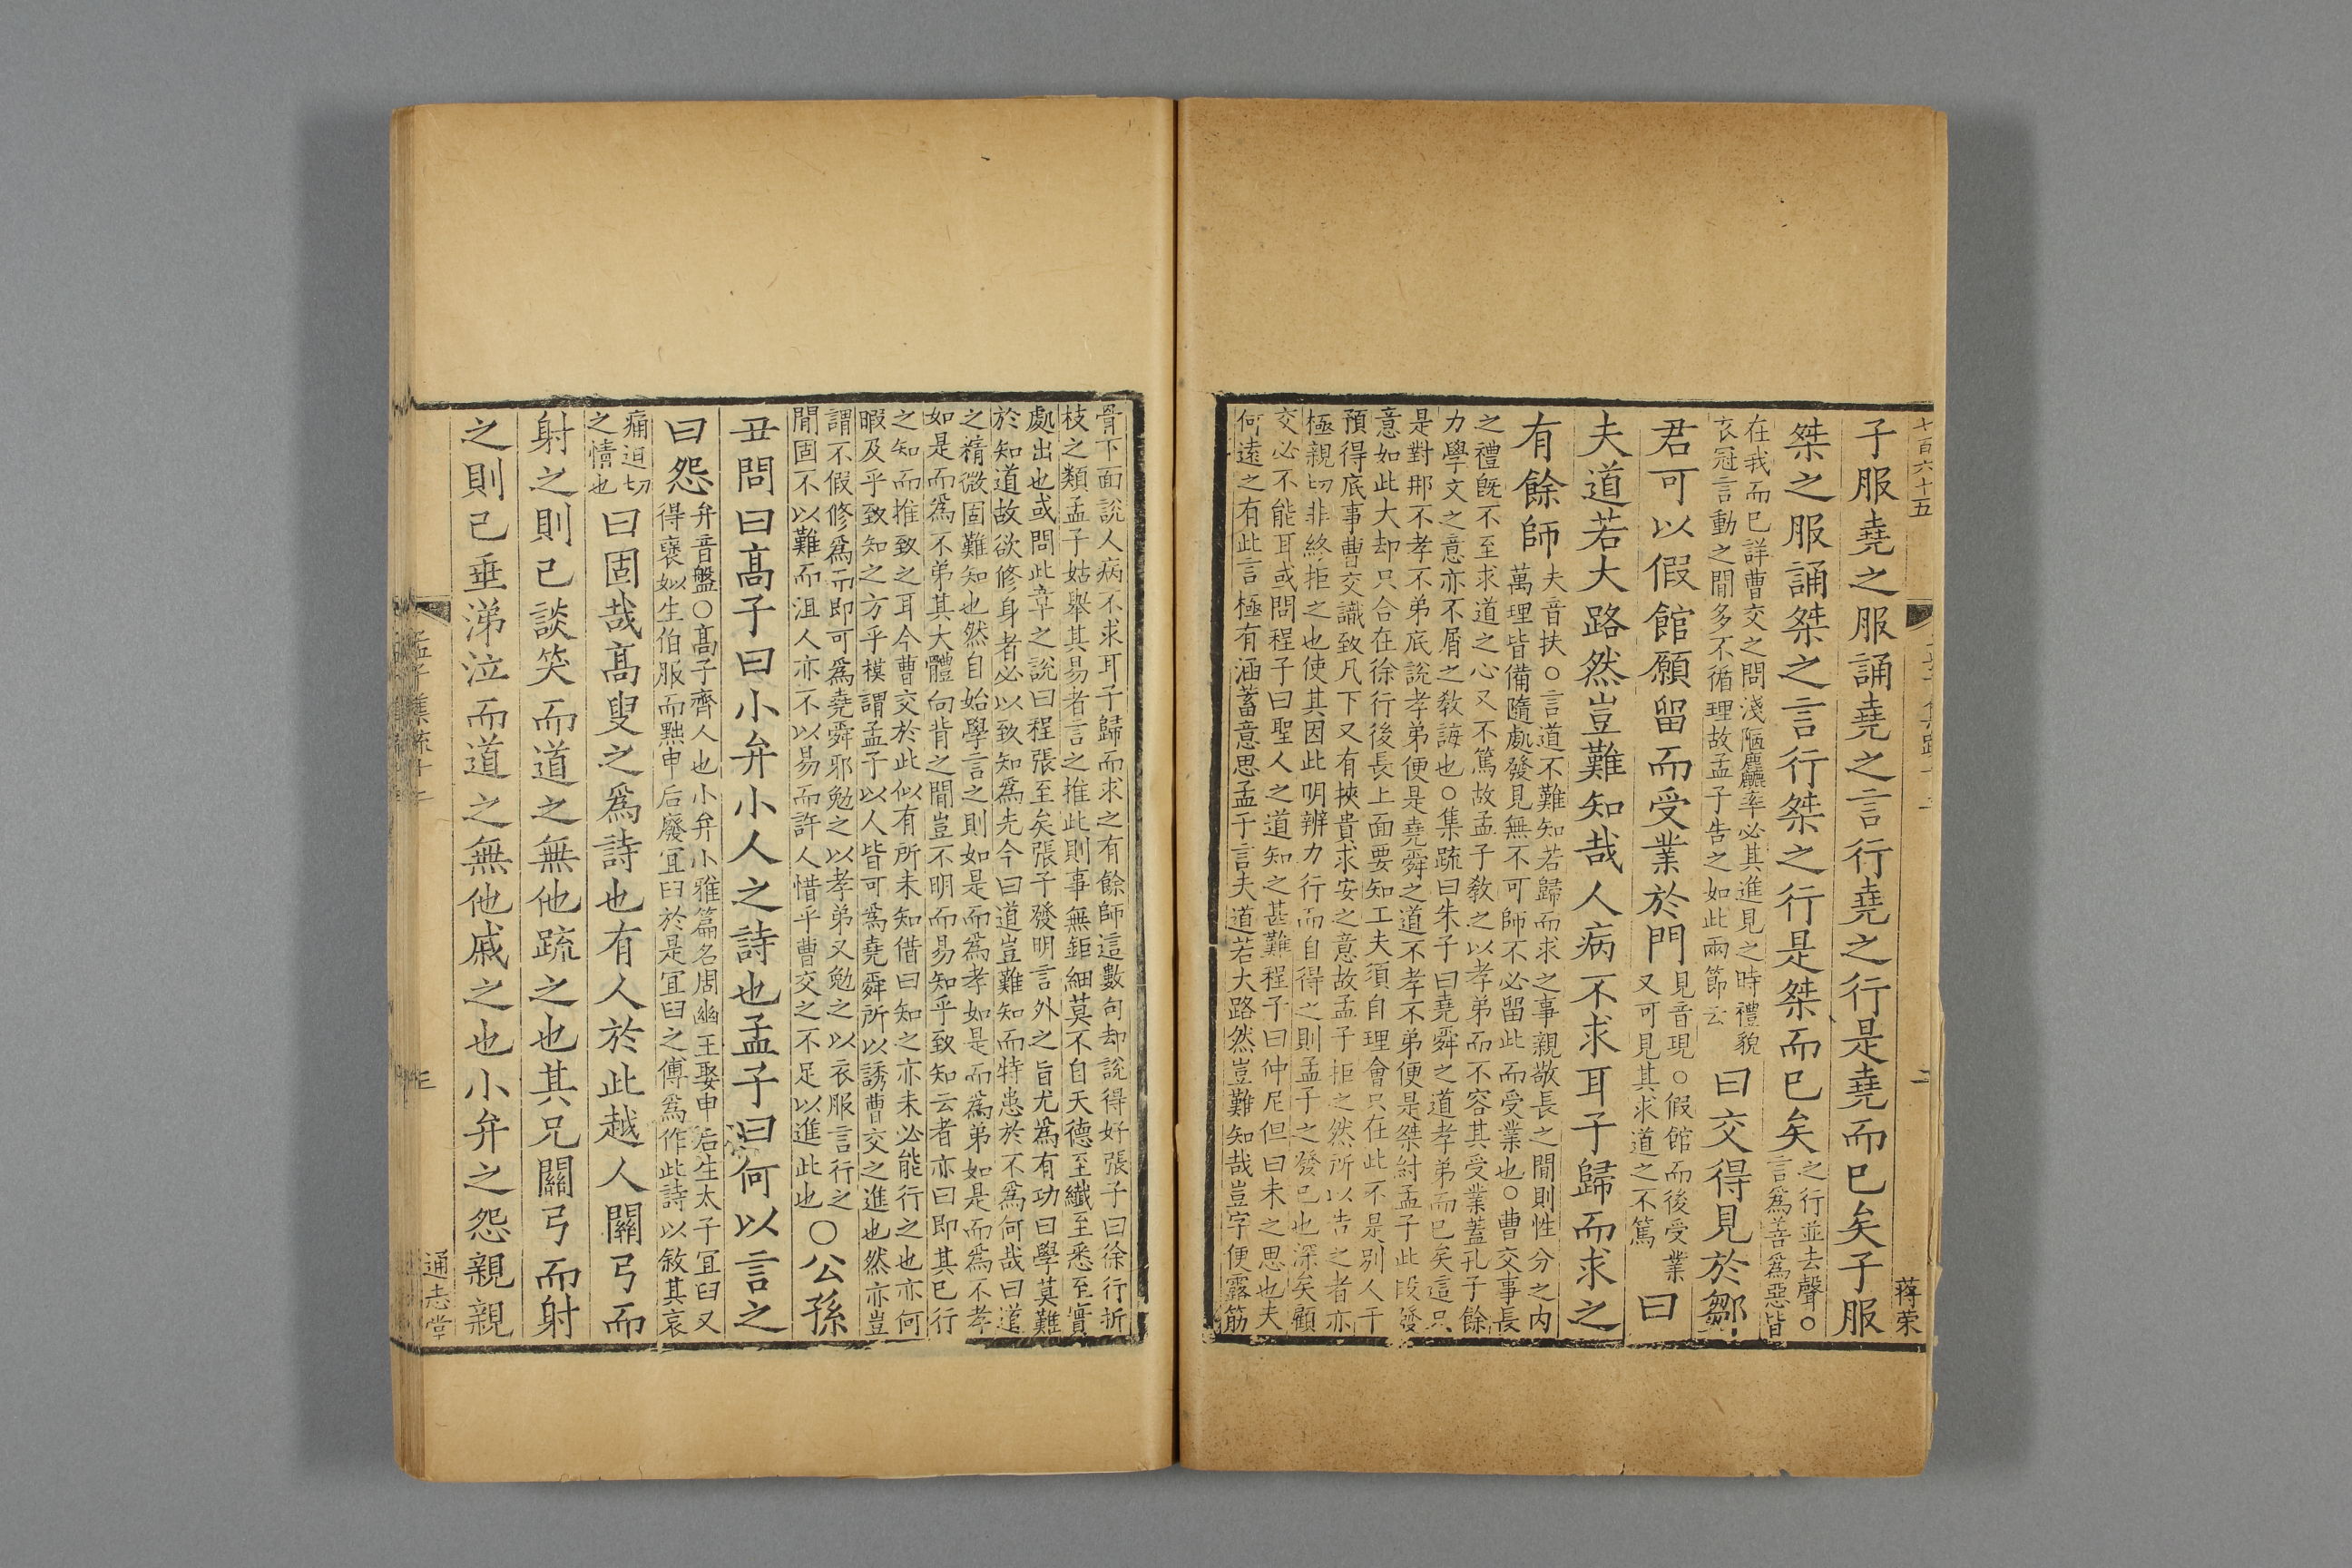 七百六十五
二
蔣荣
子服堯之服誦堯之言行堯之行是堯而已矣子服
桀之服誦桀之言行桀之行是桀而已矣
之行並去聲○
言爲善爲惡皆
在我而已詳曹交之問淺陋麤率必其進見之時禮貌
衣冠言動之間多不循理故孟子告之如此兩節云
曰交得見於鄒
君可以假館願留而受業於門
見音現○假館而後受業
又可見其求道之不篤
曰
夫道若大路然豈難知哉人病不求耳子歸而求之
有餘師
夫音扶○言道不難知若歸而求之事親敬長之間則性分之內
萬理皆備隨處發見無不可師不必留此而受業也○曹交事長
之禮旣不至求道之心又不篤故孟子敎之以孝弟而不容其受業蓋孔子餘
力學文之意亦不屑之敎誨也○集疏曰朱子曰堯舜之道孝弟而已矣這只
是對那不孝不弟底說孝弟便是堯舜之道不孝不弟便是桀紂孟子此段發
意如此大却只合在徐行後長上面要知工夫須自理會只在此不是別人干
預得底事曹交識致凡下又有挾貴求安之意故孟子拒之然所以告之者亦
極親切非終拒之也使其因此明辨力行而自得之則孟子之發已也深矣顧
交必不能耳或問程子曰聖人之道知之甚難程子曰仲尼但曰未之思也夫
何遠之有此言極有涵蓄意思孟子言夫道若大路然豈難知哉豈字便露筋
骨下面說人病不求耳子歸而求之有餘師這數句却說得好張子曰徐行折
枝之類孟子姑舉其易者言之推此則事無鉅細莫不自天德至纖至悉至實
處出也或問此章之說曰程張至矣張子發明言外之旨尤爲有功曰學莫難
於知道故欲修身者必以致知爲先今曰道豈難知而特患於不爲何哉曰道
之精微固難知也然自始學言之則如是而爲孝如是而爲弟如是而爲不孝
如是而爲不弟其大體向背之間豈不明而易知乎致知云者亦曰即其已行
之知而推致之耳今曹交於此似有所未知借曰知之亦未必能行之也亦何
暇及乎致知之方乎模謂孟子以人皆可爲堯舜所以誘曹交之進也然亦豈
謂不假修爲而即可爲堯舜邪勉之以孝弟又勉之以衣服言行之
間固不以難而沮人亦不以易而許人惜乎曹交之不足以進此也
○公孫
丑問曰高子曰小弁小人之詩也孟子曰何以言之
曰怨
弁音盤○高子齊人也小弁小雅篇名周幽王娶申后生太子宜臼又
得襃姒生伯服而黜申后廢宜臼於是宜臼之傅爲作此詩以敘其哀
痛迫切
之情也
曰固哉高叟之爲詩也有人於此越人關弓而
射之則己談笑而道之無他疏之也其兄關弓而射
之則己垂涕泣而道之無他戚之也小弁之怨親親
孟子集疏十二
三
通志堂